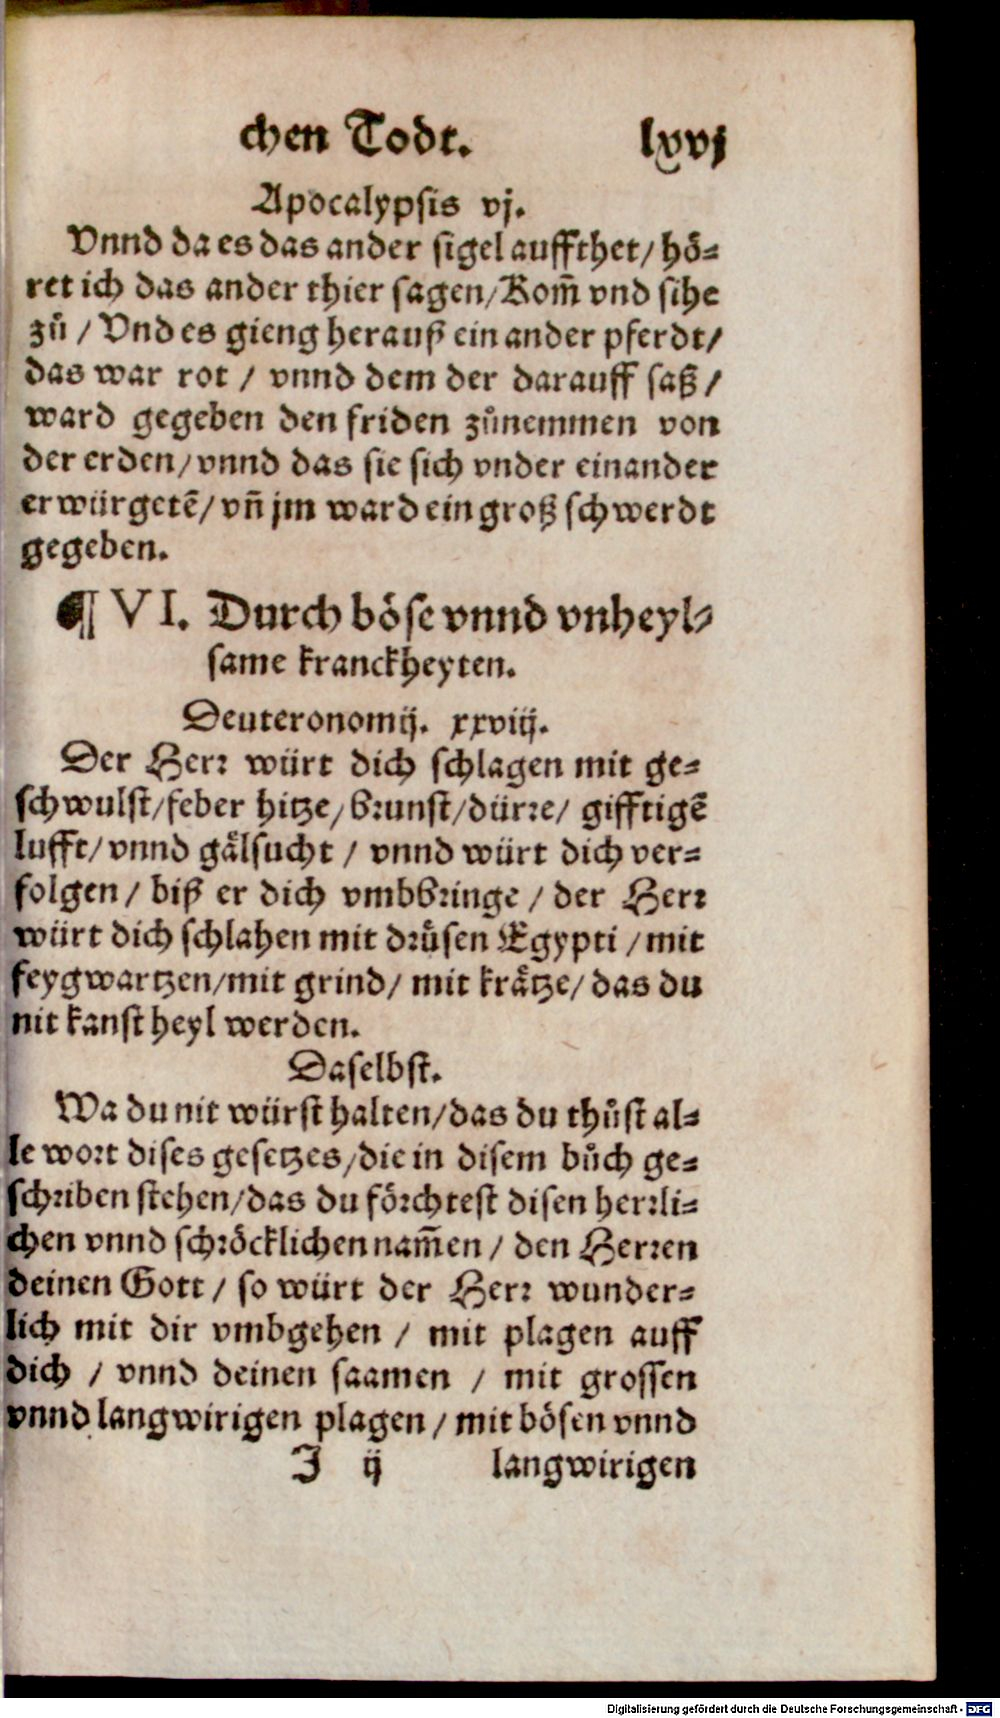 chen Todt. lxvj
Apocalypsis vj.
Vnnd da es das ander sigel auffthet / hoͤ⸗
ret ich das ander thier sagen / Kom̃ vnd sihe
zuͦ / Vnd es gieng herauß ein ander pferdt /
das war rot / vnnd dem der darauff saß /
ward gegeben den friden zuͦnemmen von
der erden / vnnd das sie sich vnder einander
erwürgetẽ / vñ jm ward ein groß schwerdt
gegeben.
¶ VI. Durch boͤse vnnd vnheyl⸗
same kranckheyten.
Deuteronomij. xxviij.
Der Herr würt dich schlagen mit ge⸗
schwulst / feber hitze / brunst / dürre / gifftigẽ
lufft / vnnd gaͤlsucht / vnnd würt dich ver⸗
folgen / biß er dich vmbbringe / der Herr
würt dich schlahen mit druͤsen Egypti / mit
feygwartzen / mit grind / mit kraͤtze / das du
nit kanst heyl werden.
Daselbst.
Wa du nit würst halten / das du thuͦst al⸗
le wort dises gesetzes / die in disem buͦch ge⸗
schriben stehen / das du foͤrchtest disen herrli⸗
chen vnnd schroͤcklichen nam̃en / den Herren
deinen Gott / so würt der Herr wunder⸗
lich mit dir vmbgehen / mit plagen auff
dich / vnnd deinen saamen / mit grossen
vnnd langwirigen plagen / mit boͤsen vnnd
J ij langwirigen
Digitalisierung gefördert durch die Deutsche Forschungsgemeinschaft - DFG